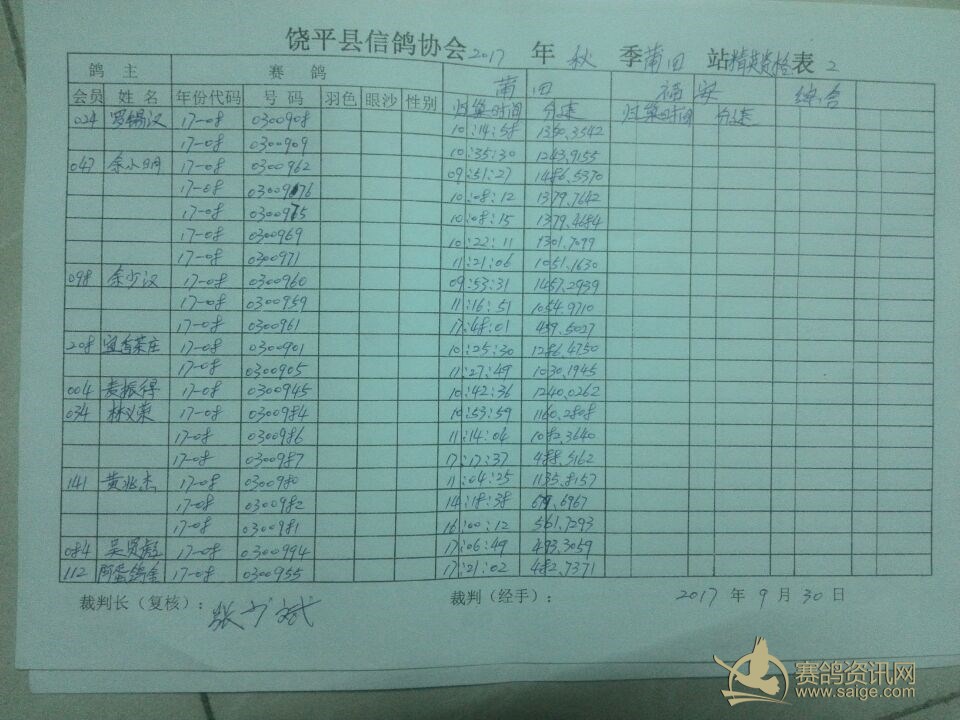 饶平县信鸽协会2017年秋季莆田站精英资格表2
鸽主 赛鸽 莆田 福安 综合
会员 姓名 年份代码 号码 羽色 眼沙 性别 归巢时间 分速 归巢时间 分速
024 罗锡汉 17-08 0300908 10:14:58 1350.3542
17-08 0300909 10:35:30 1243.9155
047 余小明 17-08 0300962 09:51:27 1486.5370
17-08 0300976 10:08:12 1379.7642
17-08 0300975 10:08:15 1379.4684
17-08 0300969 10:22:11 1301.7099
17-08 0300971 11:21:06 1051.1630
098 余少汉 17-08 0300960 09:53:31 1457.2939
17-08 0300959 11:16:51 1054.9710
17-08 0300961 17:48:01 459.5027
208 宜香茶庄 17-08 0300901 10:25:30 1286.4750
17-08 0300905 11:27:49 1030.1945
004 麦振得 17-08 0300945 10:42:36 1240.0262
034 林义荣 17-08 0300984 10:53:59 1160.2808
17-08 0300986 11:14:04 1082.3640
17-08 0300987 17:17:37 488.5162
141 黄兆杰 17-08 0300980 11:04:25 1135.8157
17-08 0300982 14:18:38
17-08 0300981 16:00:12 561.7293
084 吴贤彪 17-08 0300994 17:06:49 493.3059
112 17-08 0300955 17:21:02 482.7371
裁判长(复核): 裁判(经手): 2017年9月30日
赛鸽资讯网
www.saige.com